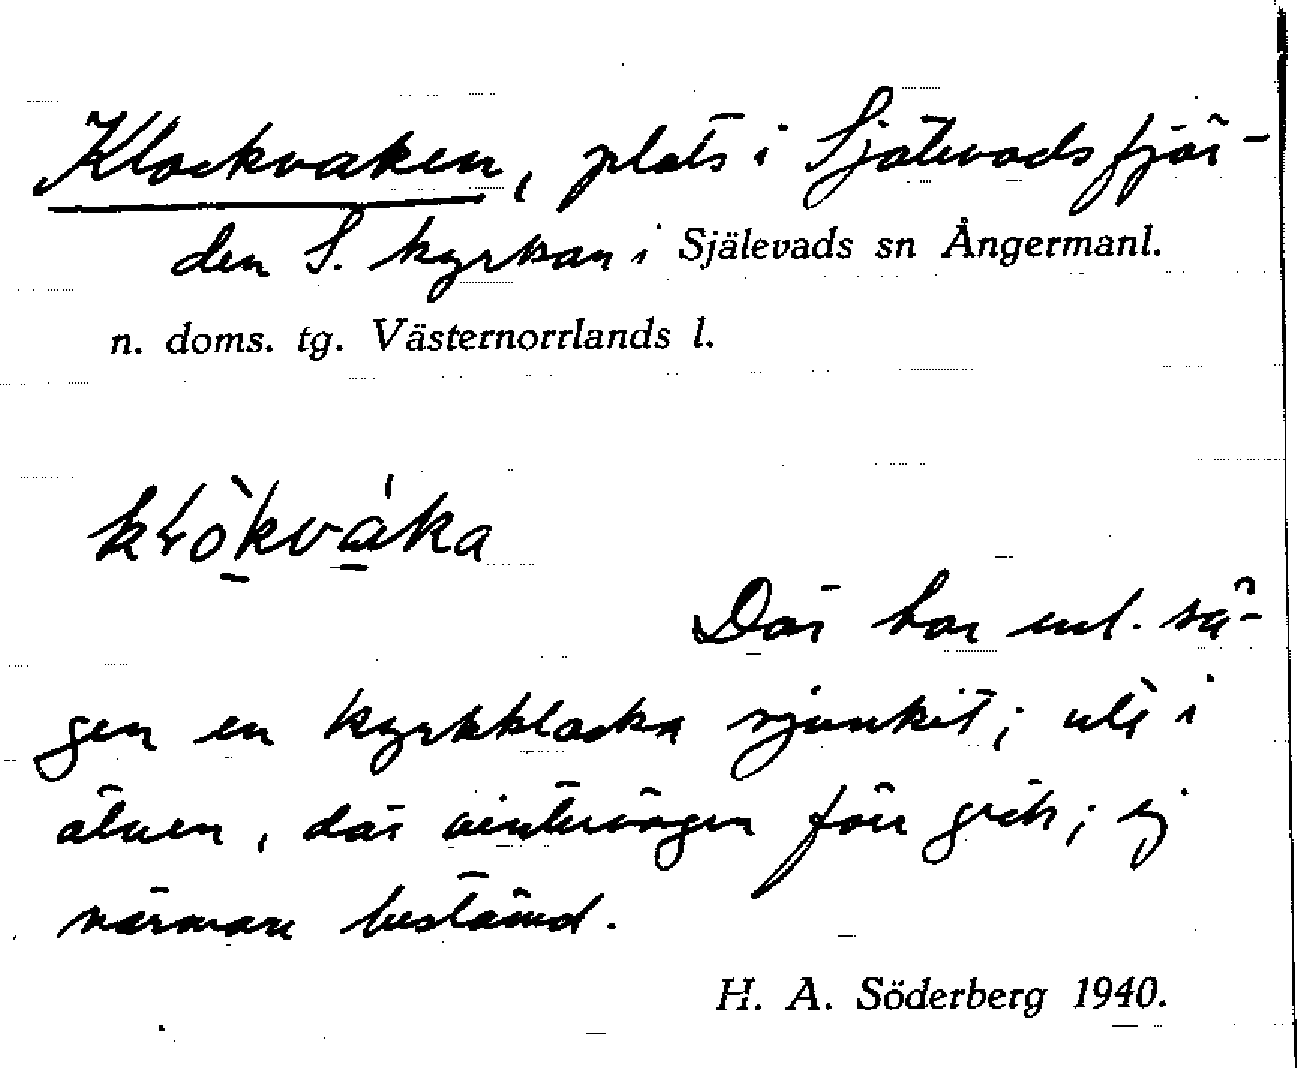 Klockvaken, plats i Själevadsfjär-
den S. kyrkan i Själevads sn Ångermanl.
n. doms. tg. Västernorrlands l.
Där har enl. sä-
gen en kyrkklocka sjunkit; ute i
älven, där vintervägen förr gick; ej
närmare bestämd.
H. A. Söderberg 1940.